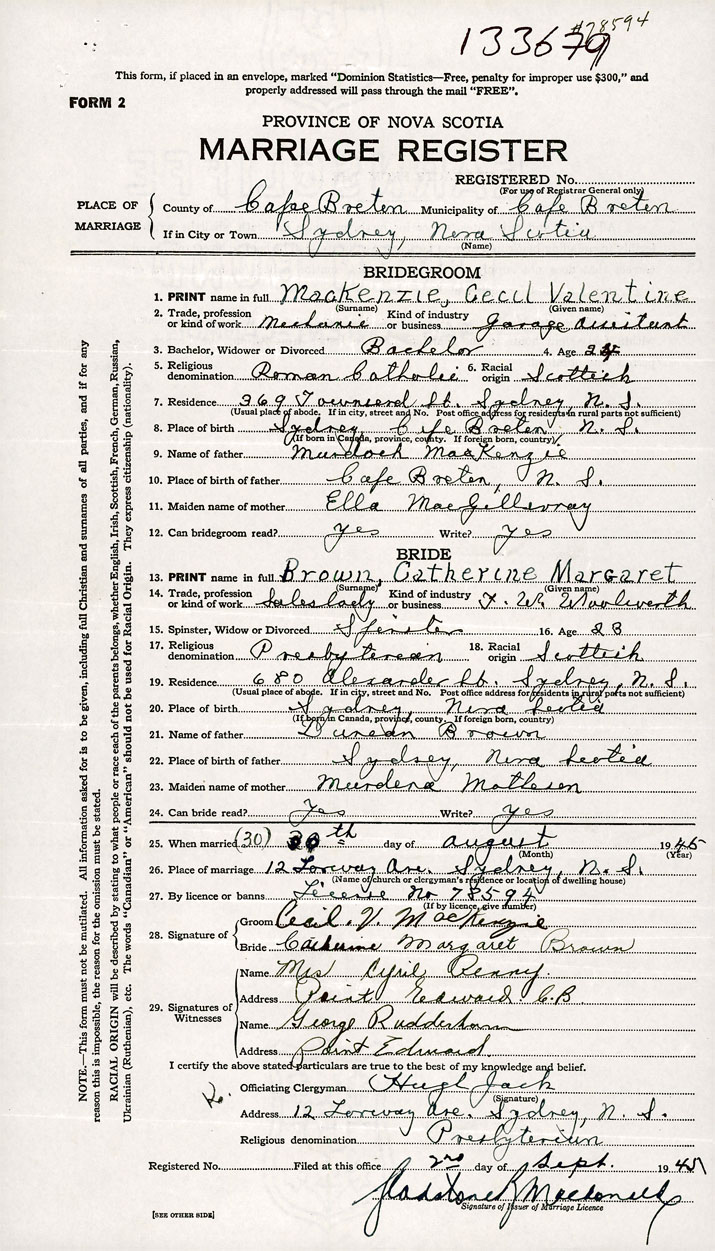 #78594
133679
This form, if placed in an envelope, marked "Dominion Statistics—Free, penalty for improper use $300," and
properly addressed will pass through the mail "FREE".
FORM 2
PROVINCE OF NOVA SCOTIA
MARRIAGE REGISTER
REGISTERED No.
(For use of Registrar General only)
PLACE OF MARRIAGE
County of Cape Breton Municipality of Cape Breton
If in City or Town Sydney, Nova Scotia
(Name)
BRIDEGROOM
1. PRINT name in full MacKenzie, Cecil Valentine
(Surname) (Given name)
2. Trade, profession or kind of work Mechanic Kind of industry or business Garage Assistant
3. Bachelor, Widower or Divorced Bachelor 4. Age
5. Religious denomination Roman Catholic 6. Racial origin Scottish
7. Residence 369 Townsend St. Sydney N. S.
(Usual place of abode. If in city, street and No. Post office address for residents in rural parts not sufficient)
8. Place of birth Sydney, Cape Breton N. S.
(If born in Canada, province, county. If foreign born, country)
9. Name of father Murdoch MacKenzie
10. Place of birth of father Cape Breton, N. S.
11. Maiden name of mother Ella MacGillivray
12. Can bridegroom read? yes Write? yes
BRIDE
13. PRINT name in full Brown, Catherine Margaret
(Surname) (Given name)
14. Trade, profession or kind of work Saleslady Kind of industry or business F. W. Woolworth
15. Spinster, Widow or Divorced Spinster 16. Age 23
17. Religious denomination Presbyterian 18. Racial origin Scottish
19. Residence 680 Alexander St. Sydney, N. S.
(Usual place of abode. If in city, street and No. Post office address for residents in rural parts not sufficient)
20. Place of birth Sydney, Nova Scotia
(If born in Canada, province, county. If foreign born, country)
21. Name of father Duncan Brown
22. Place of birth of father Sydney, Nova Scotia
23. Maiden name of mother Murdena Matheson
24. Can bride read? Yes Write? yes
25. When married (30) 30th day of August 1945
(Month) (Year)
26. Place of marriage 12 Lorway Ave. Sydney, N. S.
(Name of church or clergyman's residence or location of dwelling house)
27. By licence or banns License No 78594
(If by licence, give number)
28. Signature of
Groom Cecil. V. MacKenzie
Bride Catherine Margaret Brown
29. Signatures of Witnesses
Name Mrs Cyril Penny.
Address Point Edward C.B
Name George Rudderham
Address Point Edward.
I certify the above stated particulars are true to the best of my knowledge and belief.
Officiating Clergyman Hugh Jack
(Signature)
Address 12 Lorway Ave. Sydney, N. S.
Religious denomination Presbyterian
Registered No. Filed at this office 2nd day of Sept. 1945
Gladstone Macdonald
Signature of Issuer of Marriage Licence
[SEE OTHER SIDE]
NOTE.—This form must not be mutilated. All information asked for is to be given, including full Christian and surnames of all parties, and if for any
reason this is impossible, the reason for the omission must be stated.
RACIAL ORIGIN will be described by stating to what people or race each of the parents belongs, whether English, Irish, Scottish, French, German, Russian,
Ukrainian (Ruthenian), etc. The words "Canadian" or "American" should not be used for Racial Origin. They express citizenship (nationality).